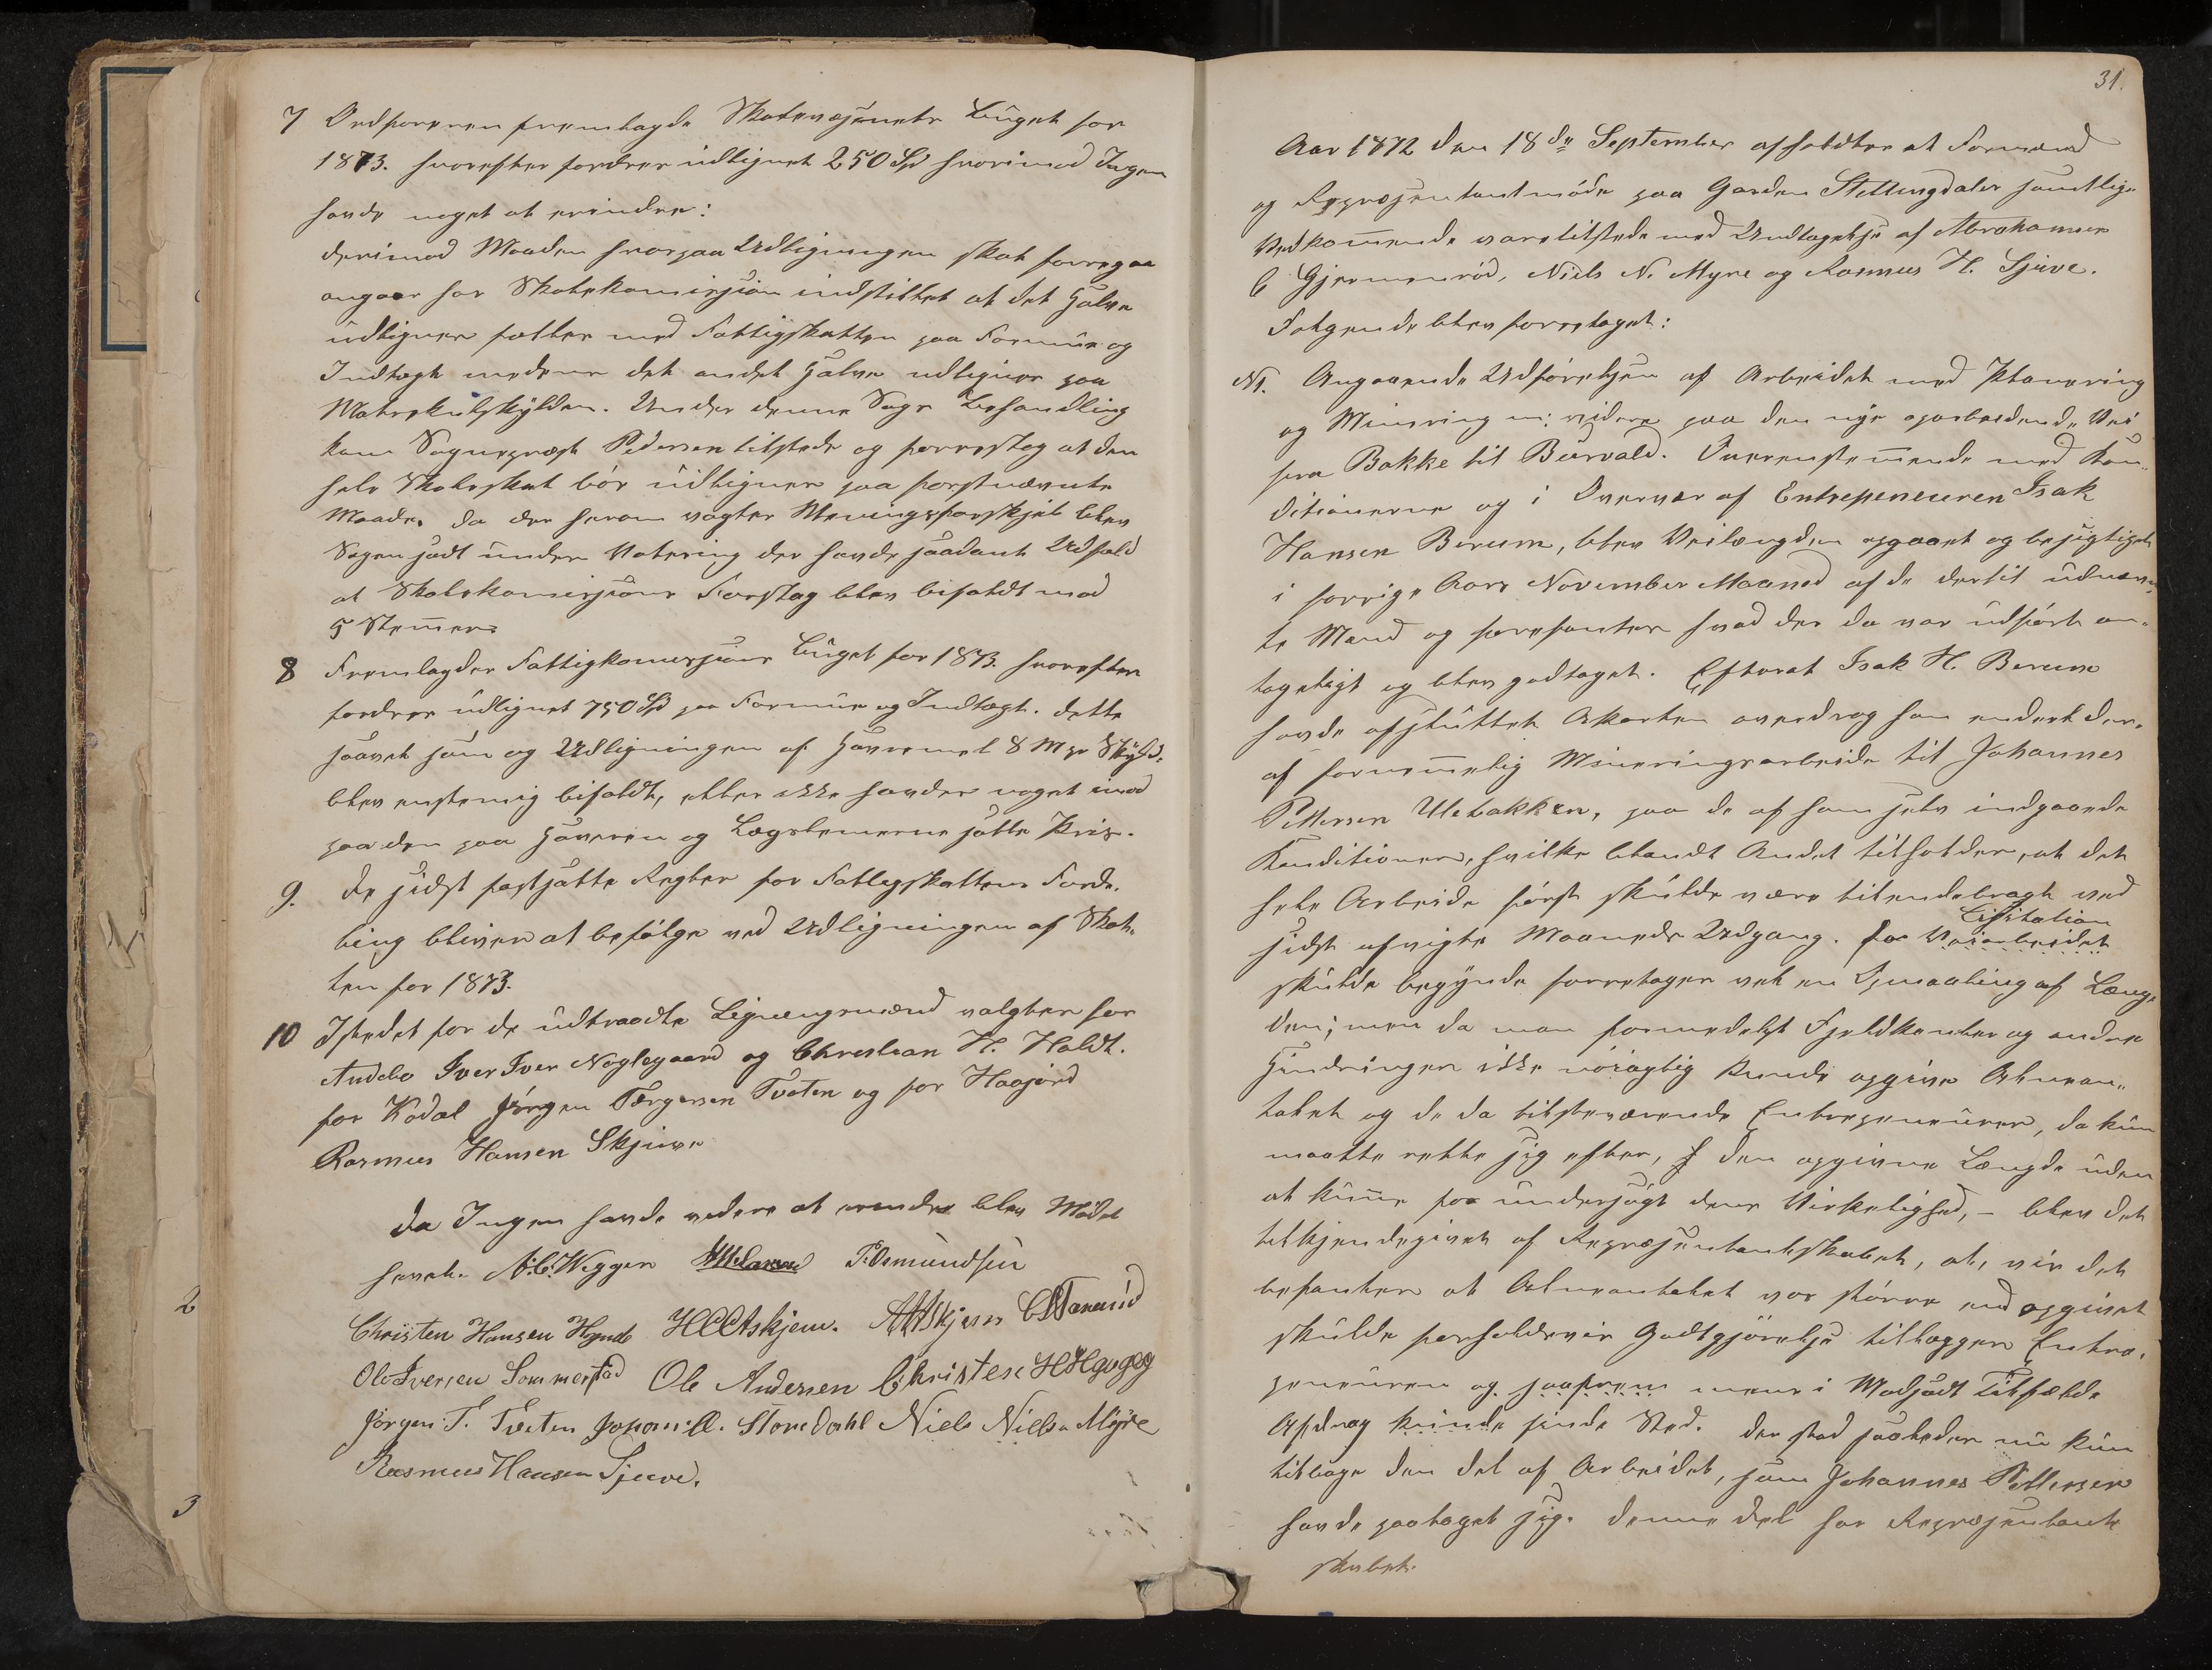 7 Ordføreren fremlagde Skolevæsenets Buget for
1873. hvorefter fordres udlignet 250 Spd hvorimod Ingen
havde noget at erindre:
derimod Maaden hvorpaa Udligningen skal foregaa
angaar har Skolekomissjon indstillet at det Halve
udlignes fælles med Fattigskatten paa Formue og
Indtægt medens det andet Halve udlignes paa
Matrekulskylden. Under denne Sags Behandling
kom Sognepræst Pedersen tilstede og foreslog at den
hele Skoleskat bør udlignes paa førstnævnte
Maade. da der herom vagtes Meningsforskjel blev
Sagen sadt under Votering der havde saadant Udfald
at Skolekomisjons Forslag blev bifaldt mod
5 Stemmer.
8 Fremlagdes Fattigkomissjons Buget for 1873. hvorefter
fordres udlignet 750 Spd paa Formue og Indtægt. dette
saavel som og Udligningen af Havremel 8 Mrk pr Skyld.
blev enstemig bifaldt, eller ikke havdes noget imod
paa den paa Havren og Lægslemerne satte Pris.
9. de sidst fastsatte Regler for Fattigskattens Forde-
ling bliver at befølge ved Udligningen af Skat-
ten for 1873.
10 Istedet for de udtraadte Ligningsmænd valgtes for
Andebo Iver Iver Nøglegaard og Christian H. Holdt.
for Kodal Jørgen Tørgersen Tveten og for Høajord
Rasmus Hansen Skjuve
da Ingen havde videre at erindre blev Mødet
hævet. N.C. Wegger P. Osmundsen
Christen Hansen Hynde H C Askjem. A A Askjem
Ole Iversen Sommerstad Ole Andersen Christen H Haugag
Jørgen T. Tveten Johan Stordahl Niels Nielsen Myre
Rasmus Hansen Sjuve.
2
3
31.
Aar 1872 den 18de September afholdtes et Formænd
og Repræsentantmøde paa Garden Stillingsdalen samtlige
Vedkommende vare tilstede med Undtagelse af Abrahamsen
C Gjermenrød, Niels N. Myre og Rasmus H. Sjuve.
Følgende blev foretaget:
N1. Angaaende Udførelsen af Arbeidet med Planering
og Minering m: videre paa den nye oparbeidende Vei
fra Bakke til Buvald. Overenstemmende med Kon-
ditionerne og i Overvær af Entrepeneuren Isak
Hansen Berum, blev Veilængden opgaaet og besigtiget
i forrige Aars November Maaned af de dertil udnævn-
te Mænd og forefantes hvad der da var udført an-
tageligt og blev godtaget. Efterat Isak H. Berum
havde afsluttet Akorten overdrog han endeel der-
af fornemmelig Mineringsarbeide til Johannes
Pettersen Ulebakken, paa de af ham selv indgaaede
Konditioner, hvilke blandt Andet tilholder, at det
hele Arbeide først skulde være tilendebragt ved
sidst afvigte Maaneds Udgang. før Veiarbeidet Lisitation
skulde begynde foretages vel en Opmaaling af Læng
den; men da man formedelst Fjeldkanter og andre
Hindringer ikke nøiagtig kunde opgive Alnean-
tallet og de da tilstedeværende Entrepeneurer, da kun
maatte rette sig efter, den opgivne Længde uden
at kunne faa undersøgt dens Virkelighed, – blev det
tilkjendegivet af Repræsentantskabet, at, vis det
befantes at Alneantallet var større end opgivet
skulde forholdsvis Godtgjørelse tillægges Entre-
peneuren og saafrem mens i Modsadt Tilfælde
Afdrag kunde finde Sted. der stod saaledes nu kun
tilbage den del af Arbeidet, som Johannes Pettersen
havde paataget sig. denne del har Repræsentant
skabet.